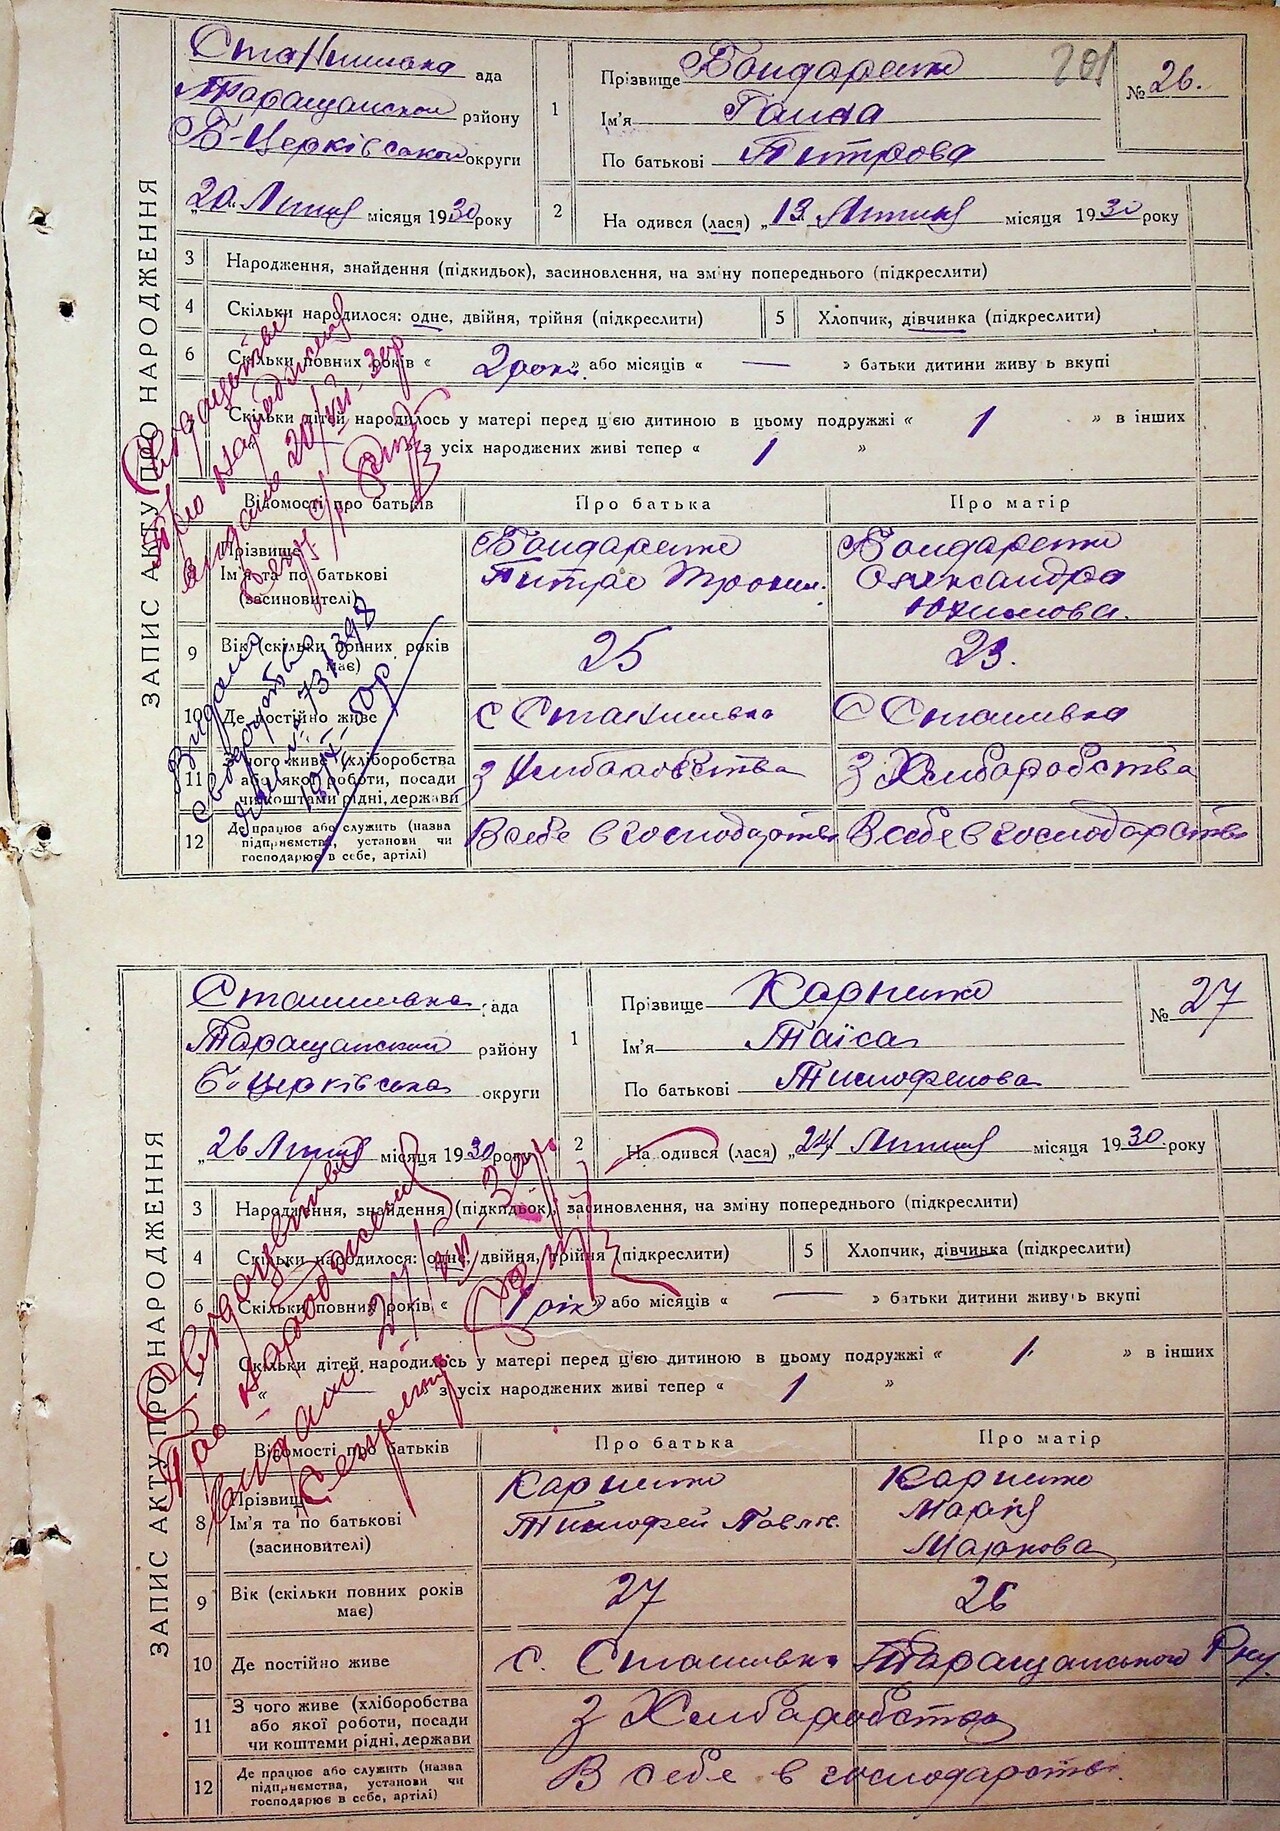 201
ЗАПИС АКТУ ПРО НАРОДЖЕННЯ
Станишівка ада
Таращанської рзйону
Б-Церківської округи
„20. Лютня місяця 1930 року
1 Прізвище Бондаренко
Ім'я Ганна
По батькові Питрова
№ 26.
2 На одився (лася) „13 Лютня місяця 1930 року
3 Народження, знайдення (підкидьок), засиновлення, на зміну попереднього (підкреслити)
4 Скільки народилося: одне, двійня, трійня (підкреслити) 5 Хлопчик, дівчинка (підкреслити)
6 Скільки повних років « 2 роки » або місяців « — » батьки дитини живу ь вкупі
Скільки дітей народилось у матері перед ц'єю дитиною в цьому подружжі « 1 » в інших
« — » з усіх народжених живі тепер « 1 »
Відомості про батьків Про батька Про матір
8 Прізвище Бондаренко Бондаренко
Ім'я та по батькові Питро Трохим. Олександра
(засиновителі) Юхимова.
9 Вік (скільки повних років має) 25 23.
10 Де постійно живе с Станишівка С Сташівка
11 З чого живе (хліборобства
або якої роботи, посади
чи коштами рідні, держави
З Хліборобства З Хліборобства
12 Де працює або служить (назва
підприємства, установи чи
господарює в себе, артілі)
В себе в господарстві В себе в господарстві
Свідоцтво
про народження
видано 20/VII-30р
Видано
свідоцтво
№ 731398
19/X-50р
ЗАПИС АКТУ ПРО НАРОДЖЕННЯ
Станишівка ада
Таращанский рзйону
Б-Церківська округи
„26 Лютня місяця 1930 року
1 Прізвище Карпенко
Ім'я Таїса
По батькові Тимофеіова
№ 27
2 На одився (лася) „24 Лютня місяця 1930 року
3 Народження, знайдення (підкидьок), засиновлення, на зміну попереднього (підкреслити)
4 Скільки народилося: одне, двійня, трійня (підкреслити) 5 Хлопчик, дівчинка (підкреслити)
6 Скільки повних років « 1 рік » або місяців « — » батьки дитини живу ь вкупі
Скільки дітей народилось у матері перед ц'єю дитиною в цьому подружжі « 1 » в інших
« — » з усіх народжених живі тепер « 1 »
Відомості про батьків Про батька Про матір
8 Прізвище Карпенко Карпенко
Ім'я та по батькові Тимофей Павло. Марія
(засиновителі) Маркова
9 Вік (скільки повних років має) 27 26
10 Де постійно живе с. Сташівка Таращанського Р-ну.
11 З чого живе (хліборобства
або якої роботи, посади
чи коштами рідні, держави
З Хліборобства
12 Де працює або служить (назва
підприємства, установи чи
господарює в себе, артілі)
В себе в господарстві.
Свідоцтво
про народження
видано 27/VII-30р
Секретар